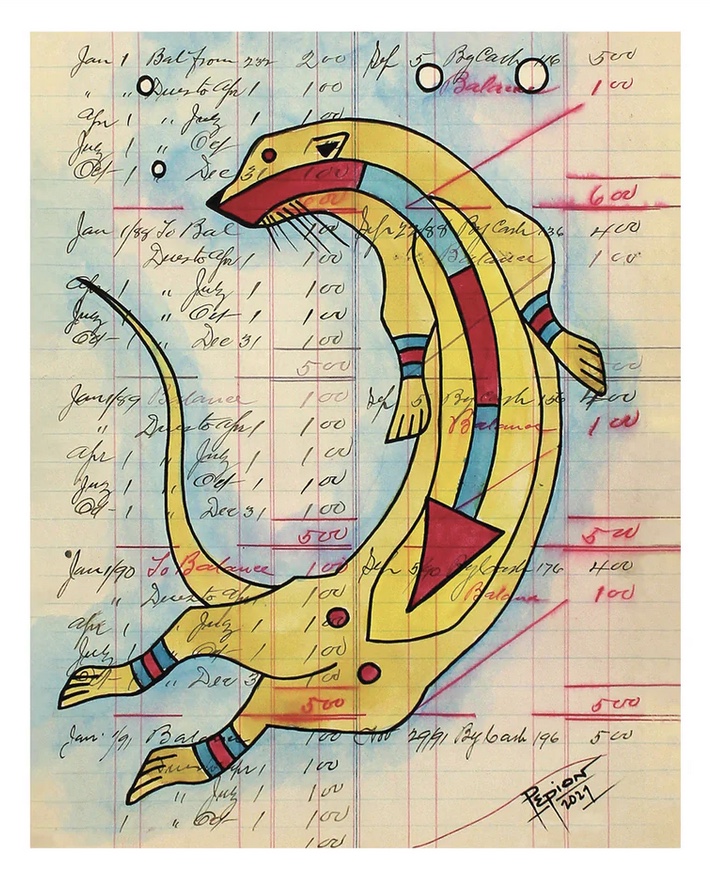 Jan 1 Bal from 232 200 Sep 5 By Cash 116 500
" " Dues to Apr 1 1 00 Balance 1 00
Apr 1 " July 1 00
July 1 " Oct 1 00
Oct 1 " Dec 31 1 00 6 00
Jan 1/88 To Bal 1 00 Sep 27/88 By Cash 136 4 00
Dues to Apr 1 1 00 Balance 1 00
Apr 1 " July 1 00
July 1 " Oct 1 00
Oct 1 " Dec 31 1 00
5 00 00
Jan 1/89 Balance 1 00 Sep 5 By Cash 156 4 00
" Dues to Apr 1 1 00 Balance 1 00
Apr 1 " July 1 00
July 1 " Oct 1 00
Oct 1 " Dec 31 1 00
5 00 5 00
Jan 1/90 To Balance 1 00 Sep 5 By Cash 176 4 00
" Dues to Apr 1 1 00 Balance 1 00
Apr 1 " July 1 00
July 1 " Oct 1 00
Oct 1 " Dec 31 1 00
5 00 5 00
Jan 1/91 Balance 1 00 29/91 By Cash 196 5 00
Dues to Apr 1 1 00
" July 1 00
1 " Oct 1 00
1 00
PEPION
2021